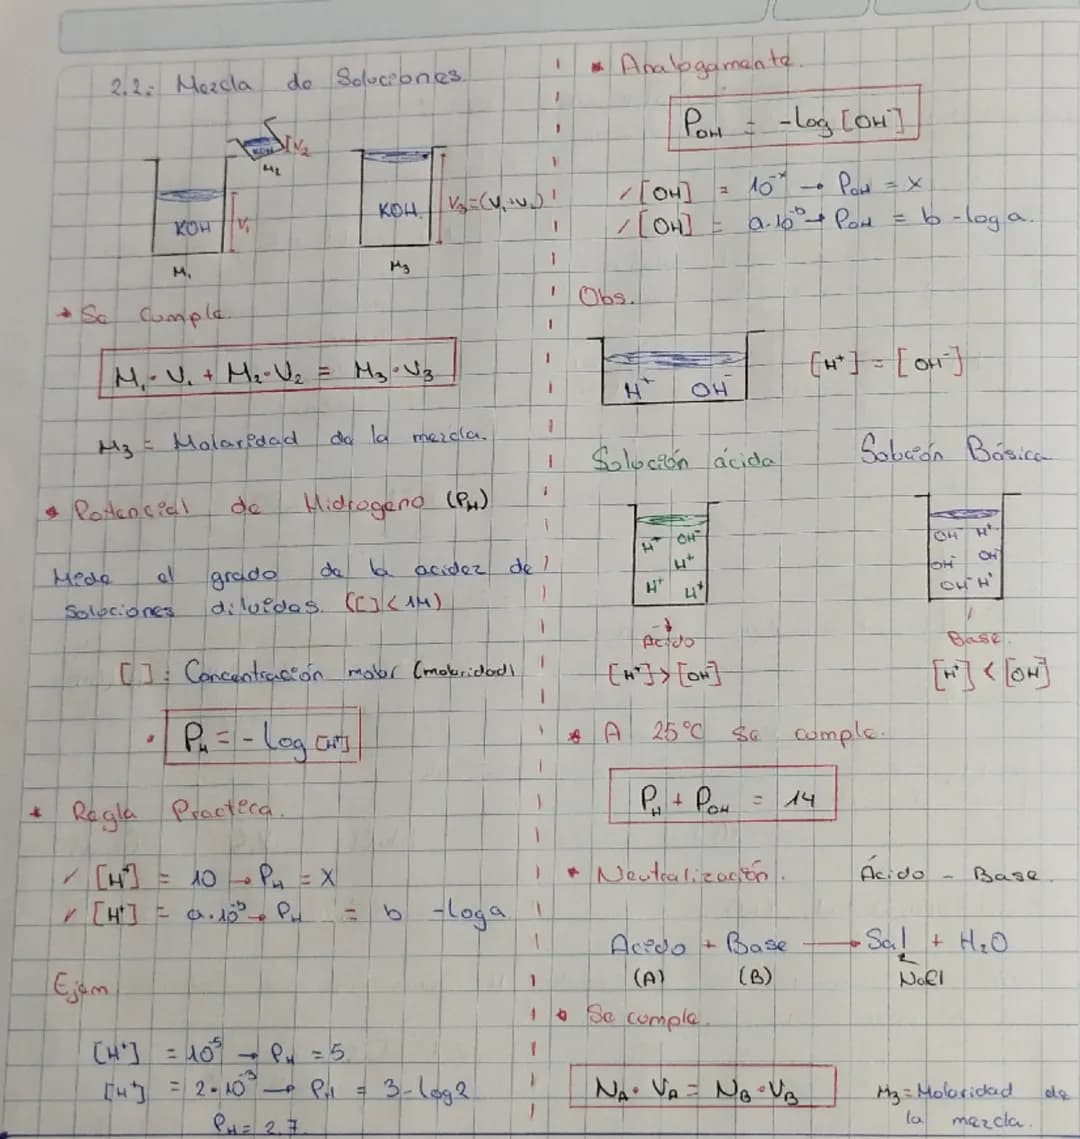 2.2: Mezcla de Soluciones
V2
KOH
M2
KOH
V1
M1
KOH
V3=(V1+V2)
M3
* Se Cumple.
M1·V1 + M2·V2 = M3·V3
M3 = Molaridad de la mezcla.
* Potencial de Hidrogeno (PH)
Mede el grado de la acidez de
Soluciones diluidas. ([]<1M)
[ ]: Concentración molar (molaridad)
• PH = -log [H+]
* Regla Practica.
✓ [H+] = 10 → PH = X
✓ [H+] = a.10-b → PH = b -loga
Ejem
[H+] = 10-5 → PH = 5.
[H+] = 2·10-3 → PH = 3-log2
PH = 2,7
* Analogamente.
POH = -log [OH-]
✓ [OH] = 10-x → POH = X
✓ [OH] = a.10-b → POH = b -loga.
Obs.
H+ OH-
[H+] = [OH-]
Solución ácida
Solución Básica
H+ OH-
H+
H+ H+
OH- H+
OH- OH
OH- H+
Acido
Base.
[H+]>[OH-]
[H+] < [OH]
* A 25°C se cumple.
PH + POH = 14
* Neutralización. Ácido - Base.
Acido + Base → Sal + H2O
(A) (B) NaCl
* Se cumple.
NA· VA = NB·VB
M3 = Molaridad de
la mezcla.